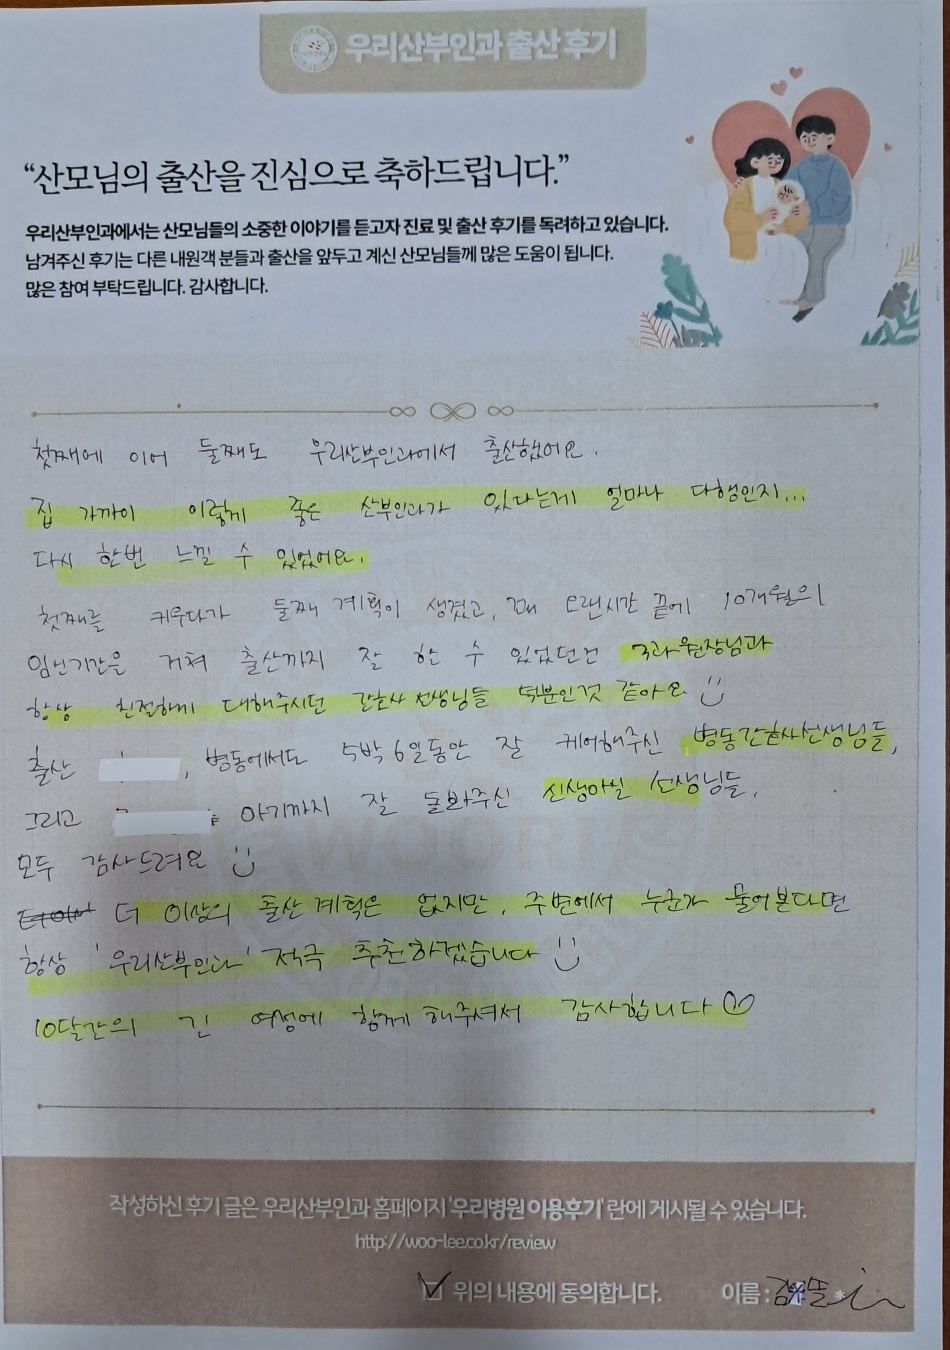 우리산부인과 출산 후기
“산모님의 출산을 진심으로 축하드립니다.”
우리산부인과에서는 산모님들의 소중한 이야기를 듣고자 진료 및 출산 후기를 독려하고 있습니다.
남겨주신 후기는 다른 내원객 분들과 출산을 앞두고 계신 산모님들께 많은 도움이 됩니다.
많은 참여 부탁드립니다. 감사합니다.
첫째에 이어 둘째도 우리산부인과에서 출산했어요.
집 가까이 이렇게 좋은 산부인과가 있다는게 얼마나 다행인지...
다시 한번 느낄 수 있었어요.
첫째를 키우다가 둘째 계획이 생겼고, 꽤 오랜시간 끝에 10개월의
임신기간을 거쳐 출산까지 잘 할 수 있었던건 3과 원장님과
항상 친절하게 대해주시던 간호사 선생님들 덕분인것 같아요
출산 , 병동에서도 5박 6일동안 잘 케어해주신 병동간호사선생님들,
그리고 아기까지 잘 돌봐주신 신생아실 선생님들,
모두 감사드려요
더 이상의 출산 계획은 없지만, 주변에서 누군가 물어본다면
항상 '우리산부인과' 적극 추천하겠습니다
10달간의 긴 여정에 함께 해주셔서 감사합니다
WOORI
작성하신 후기 글은 우리산부인과 홈페이지 '우리병원 이용후기' 란에 게시될 수 있습니다.
http://woo-lee.co.kr/review
위의 내용에 동의합니다. 이름 :